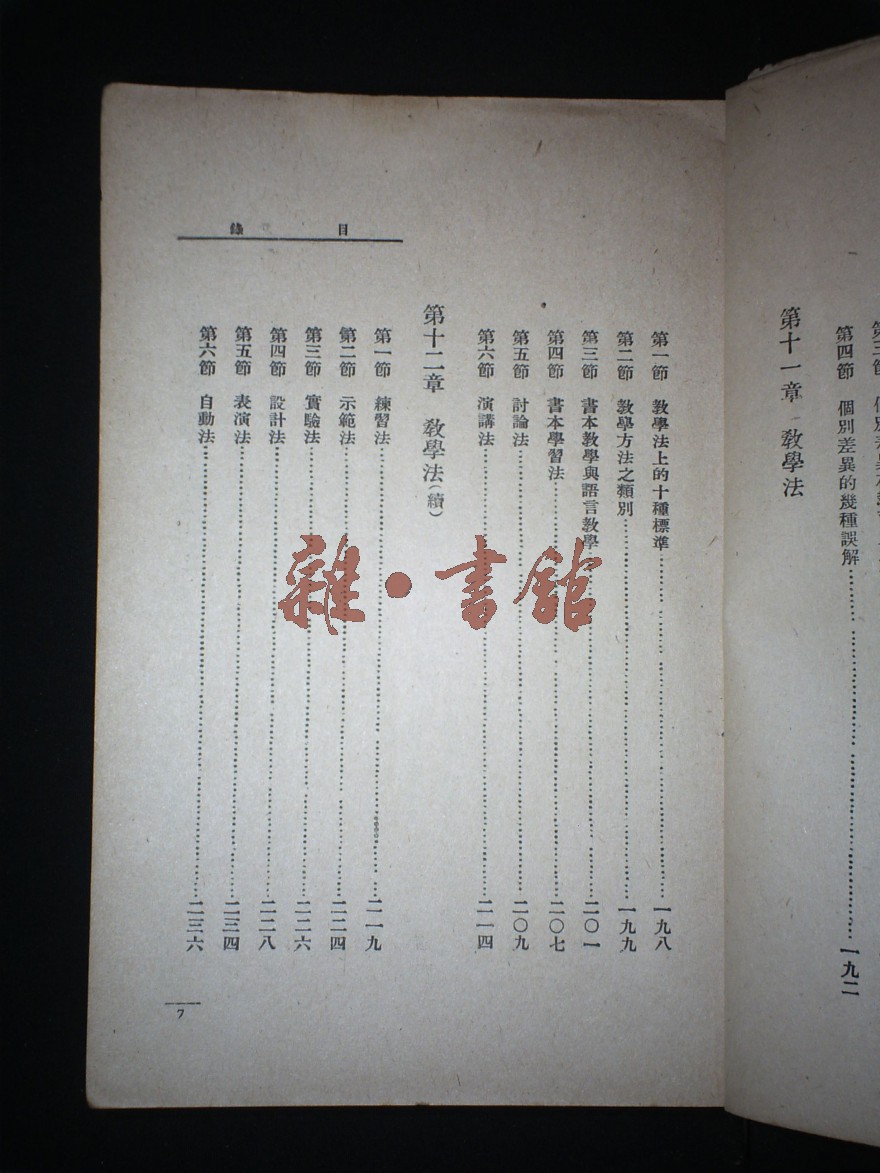 第四節　個別差異的幾種誤解……一九二
第十一章　教學法
目　錄
第一節　教學法上的十種標準……一九八
第二節　教學方法之類別……一九九
第三節　書本教學與語言教學……二〇一
第四節　書本學習法……二〇七
第五節　討論法……二〇九
第六節　演講法……二一四
第十二章　教學法（續）
第一節　練習法……二一九
第二節　示範法……二二四
第三節　實驗法……二二六
第四節　設計法……二二八
第五節　表演法……二三四
第六節　自動法……二三六
7
雜·書館